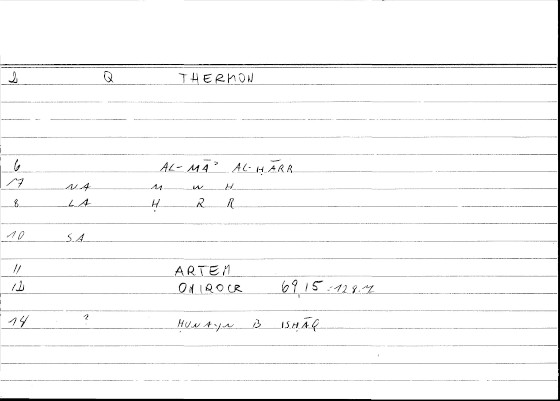 2 Q THERMON
6 AL-MĀʾ AL-ḤĀRR
7 NA M W H
8 LA Ḥ R R
10 SA
11 ARTEM
12 ONIROCR 69,15
14 ? ḤUNAYN B ISḤĀQ